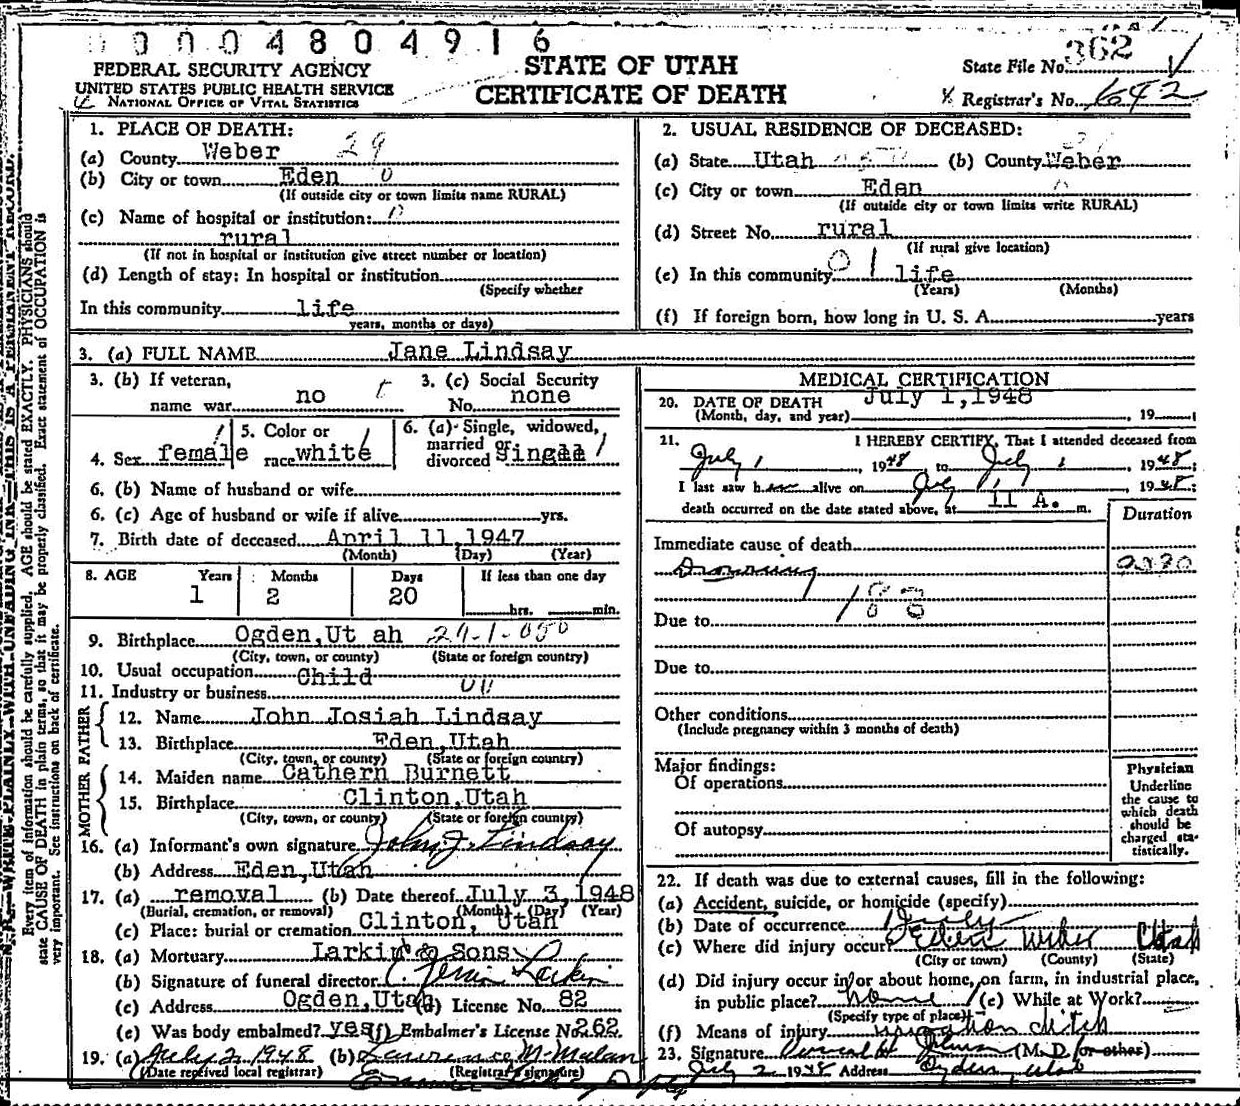 0 0 0 0 4 8 0 4 9 1 6
FEDERAL SECURITY AGENCY
UNITED STATES PUBLIC HEALTH SERVICE
NATIONAL OFFICE OF VITAL STATISTICS
STATE OF UTAH
CERTIFICATE OF DEATH
State File No. 362
Registrar's No. 642
1. PLACE OF DEATH:
(a) County Weber 29
(b) City or town Eden 0
(If outside city or town limits name RURAL)
(c) Name of hospital or institution: 0
rural
(If not in hospital or institution give street number or location)
(d) Length of stay: In hospital or institution
(Specify whether
In this community life
years, months or days)
2. USUAL RESIDENCE OF DECEASED:
(a) State Utah (b) County Weber
(c) City or town Eden
(If outside city or town limits write RURAL)
(d) Street No. rural
(If rural give location)
(e) In this community 0 1 life
(Years) (Months)
(f) If foreign born, how long in U. S. A. years
3. (a) FULL NAME Jane Lindsay
3. (b) If veteran,
name war no
3. (c) Social Security
No. none
4. Sex female
5. Color or
race white
6. (a) Single, widowed,
married or
divorced Single
6. (b) Name of husband or wife
6. (c) Age of husband or wife if alive yrs.
7. Birth date of deceased April 11,1947
(Month) (Day) (Year)
8. AGE Years Months Days If less than one day
1 2 20 hrs. min.
9. Birthplace Ogden,Ut ah 29-1-050
(City, town, or county) (State or foreign country)
10. Usual occupation Child
11. Industry or business
FATHER
12. Name John Josiah Lindsay
13. Birthplace Eden,Utah
(City, town, or county) (State or foreign country)
MOTHER
14. Maiden name Cathern Burnett
15. Birthplace Clinton,Utah
(City, town, or county) (State or foreign country)
16. (a) Informant's own signature John J. Lindsay
(b) Address Eden,Utah
17. (a) removal (b) Date thereof July 3,1948
(Burial, cremation, or removal) (Month) (Day) (Year)
(c) Place: burial or cremation Clinton, Utah
18. (a) Mortuary Larkin & Sons
(b) Signature of funeral director Larkin
(c) Address Ogden,Utah (d) License No. 82
(e) Was body embalmed? yes (f) Embalmer's License No. 262
19. (a) July 2 1948 (b) Laurence McMulan
(Date received local registrar) (Registrar's signature)
MEDICAL CERTIFICATION
20. DATE OF DEATH July 1,1948
(Month, day, and year) 19
11. I HEREBY CERTIFY, That I attended deceased from
July 1, 1948, to July 1, 1948;
I last saw her alive on July 1, 1948;
death occurred on the date stated above, at 11 A. m.
Duration
Immediate cause of death
Drowning
183
Due to
Due to
Other conditions
(Include pregnancy within 3 months of death)
Major findings:
Of operations
Of autopsy
Physician
Underline
the cause to
which death
should be
charged sta-
tistically.
22. If death was due to external causes, fill in the following:
(a) Accident, suicide, or homicide (specify)
(b) Date of occurrence 1 July
(c) Where did injury occur? Eden Weber Utah
(City or town) (County) (State)
(d) Did injury occur in or about home, on farm, in industrial place,
in public place? home (e) While at Work?
(Specify type of place)
(f) Means of injury irrigation ditch
23. Signature (M. D. or other)
July 2 1948 Address Ogden, Utah
N. B.—WRITE PLAINLY—WITH UNFADING INK—THIS IS A PERMANENT RECORD.
Every item of information should be carefully supplied. AGE should be stated EXACTLY. PHYSICIANS should
state CAUSE OF DEATH in plain terms, so that it may be properly classified. Exact statement of OCCUPATION is
very important. See instructions on back of certificate.